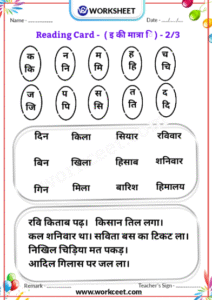 WORKSHEET
Name - Date -
Reading Card - ( इ की मात्रा ि ) - 2/3
क न म ह च
कि नि मि हि चि
ज प स त द
जि पि सि ति दि
दिन किला सियार रविवार
बिन खिला हिसाब शनिवार
गिन मिला बारिश हिमालय
रवि किताब पढ़। किसान तिल लगा।
कल शनिवार था। सविता बस का टिकट ला।
निखिल चिड़िया मत पकड़।
आदिल गिलास पर जल ला।
Remark - Teacher's Sign -
www.workceet.com